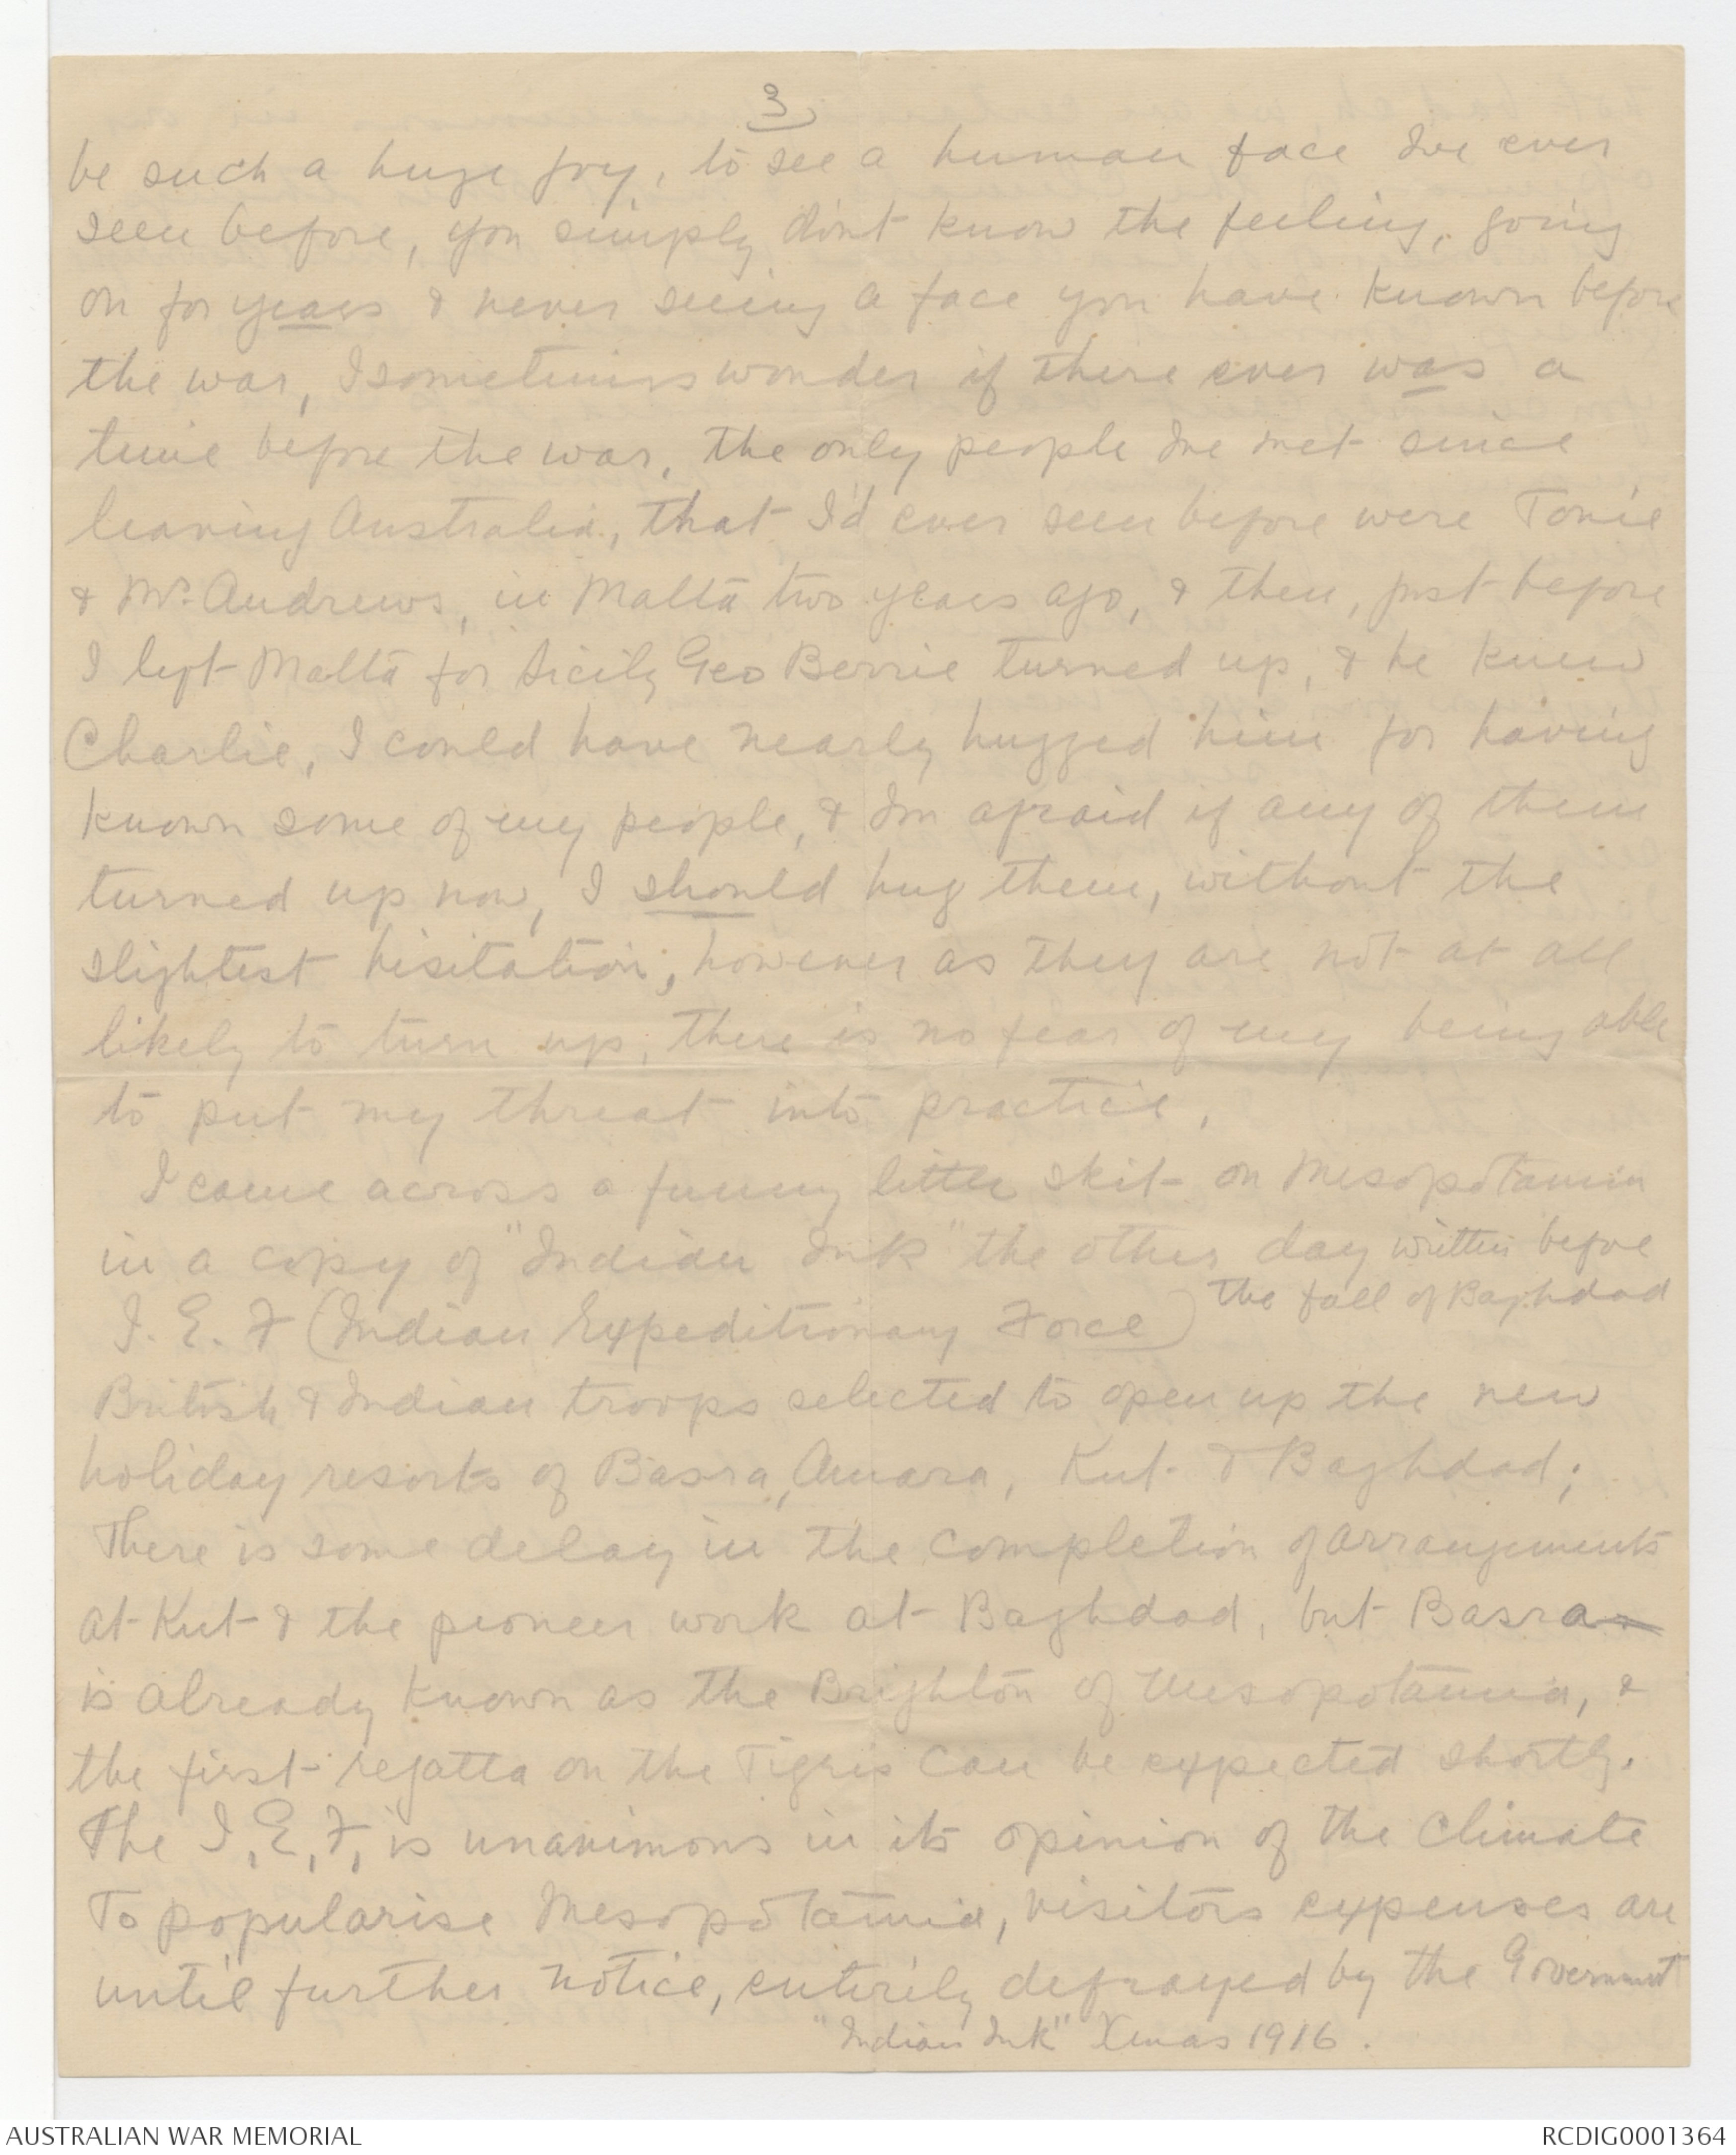 3
be such a huge joy, to see a human face I've ever
seen before, you simply don't know the feeling, going
on for years & never seeing a face you have known before
the war, I sometimes wonder if there ever was a
time before the war, the only people I've met since
leaving Australia, that I'd ever seen before were Tonie
& Mr Andrews, in Malta two years ago, & then, just before
I left Malta for Sicily Geo Berrie turned up, & he knew
Charlie, I could have nearly hugged him for having
known some of my people, & I'm afraid if any of them
turned up now, I should hug them, without the
slightest hisitation; however as they are not at all
likely to turn up, there is no fear of my being able
to put my threat into practice.
I came across a funny little skit on Mesopotamia
in a copy of "Indian Ink" the other day written before
the fall of Baghdad
I. E. F (Indian Expeditionary Force)
British & Indian troops selected to open up the new
holiday resorts of Basra, Amara, Kut & Baghdad;
There is some delay in the completion of arrangements
at Kut & the pioneer work at Baghdad, but Basra
is already known as the Brighton of Mesopotamia, &
the first regatta on the Tigris can be expected shortly.
The I.E.F. is unanimous in its opinion of the climate
To popularise Mesopotamia, visitors expenses are
until further notice, entirely defrayed by the Government
"Indian Ink" Xmas 1916.
AUSTRALIAN WAR MEMORIAL
RCDIG0001364